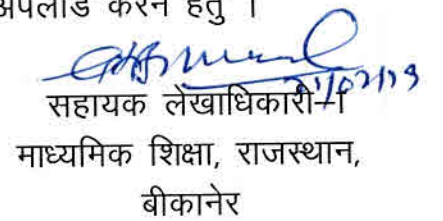 अपलोड करने हेतु ।
सहायक लेखाधिकारी–I
माध्यमिक शिक्षा, राजस्थान,
बीकानेर